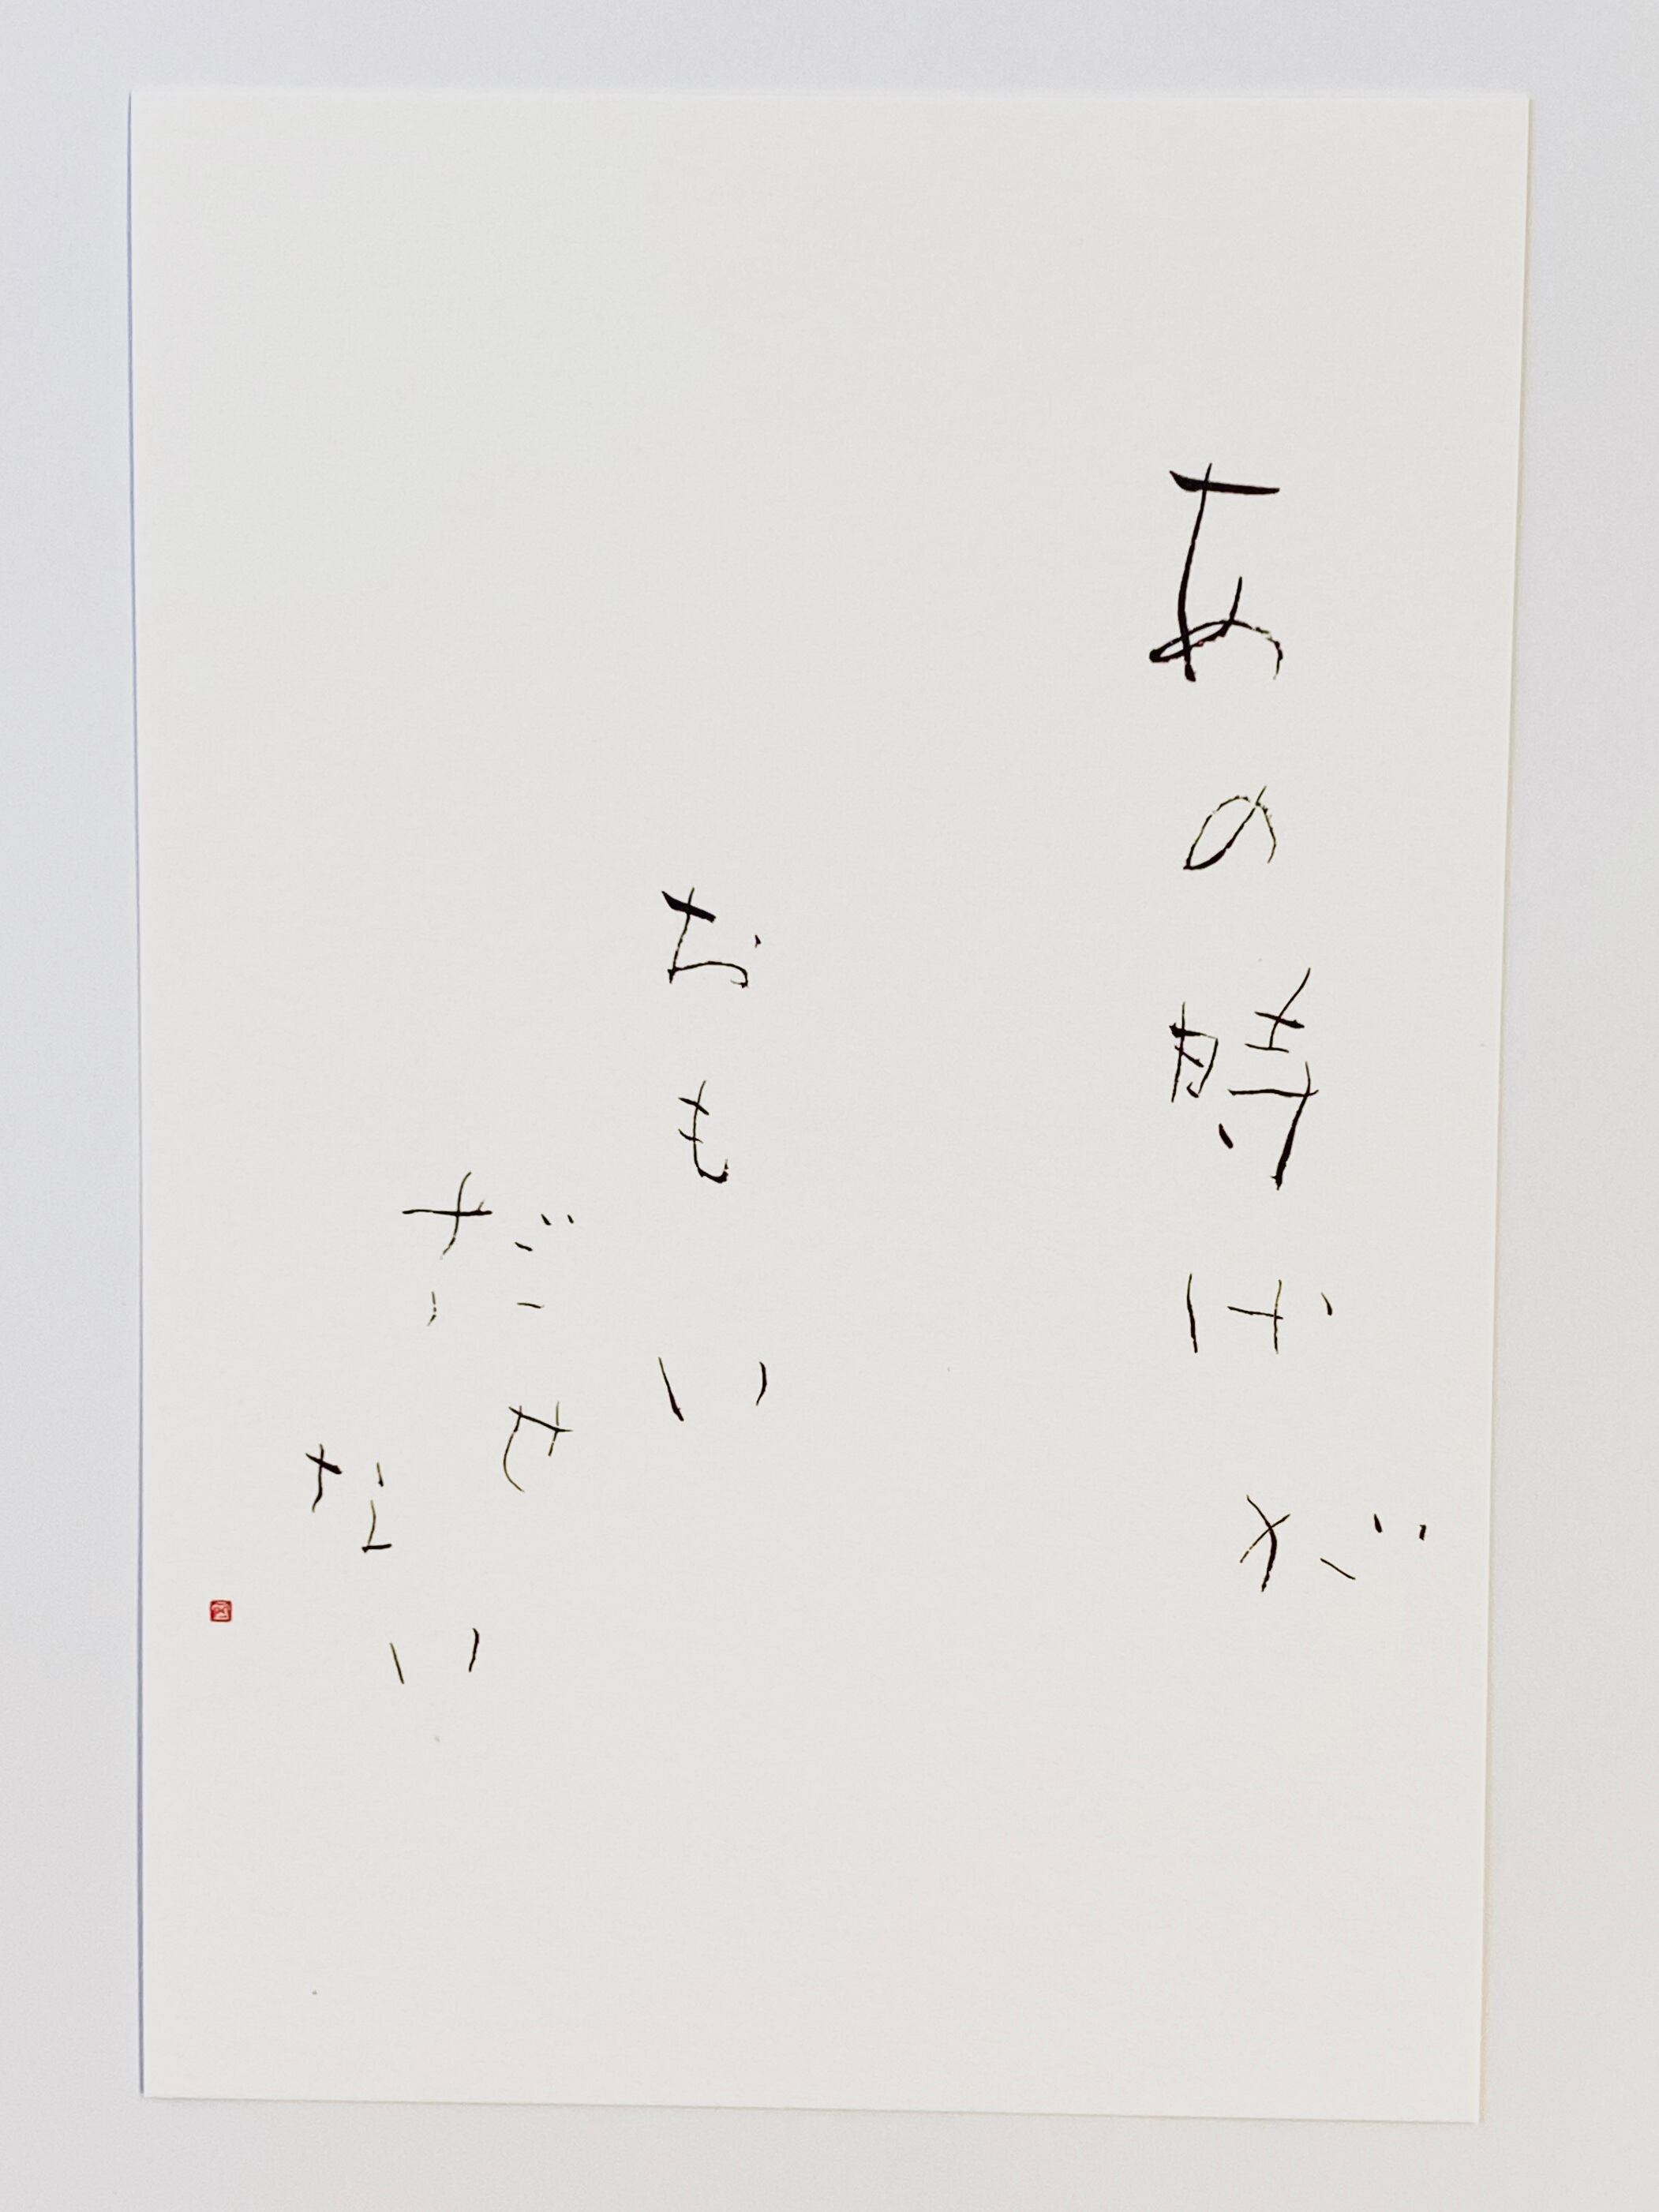 あの時が
おもい
だせ
ない